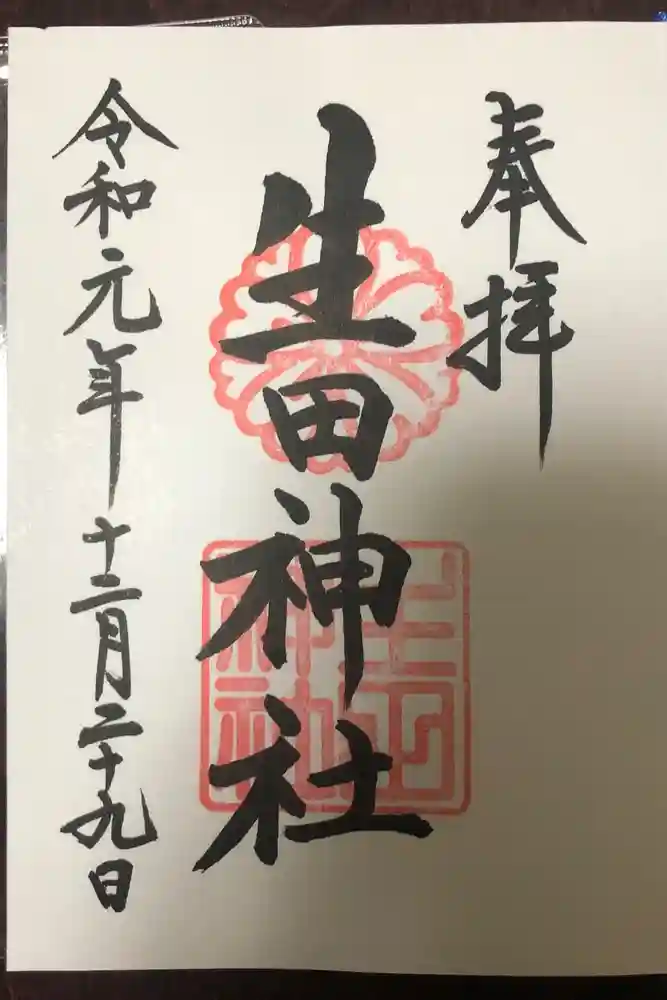 奉拝
生田神社
令和元年十二月二十九日
生田神社